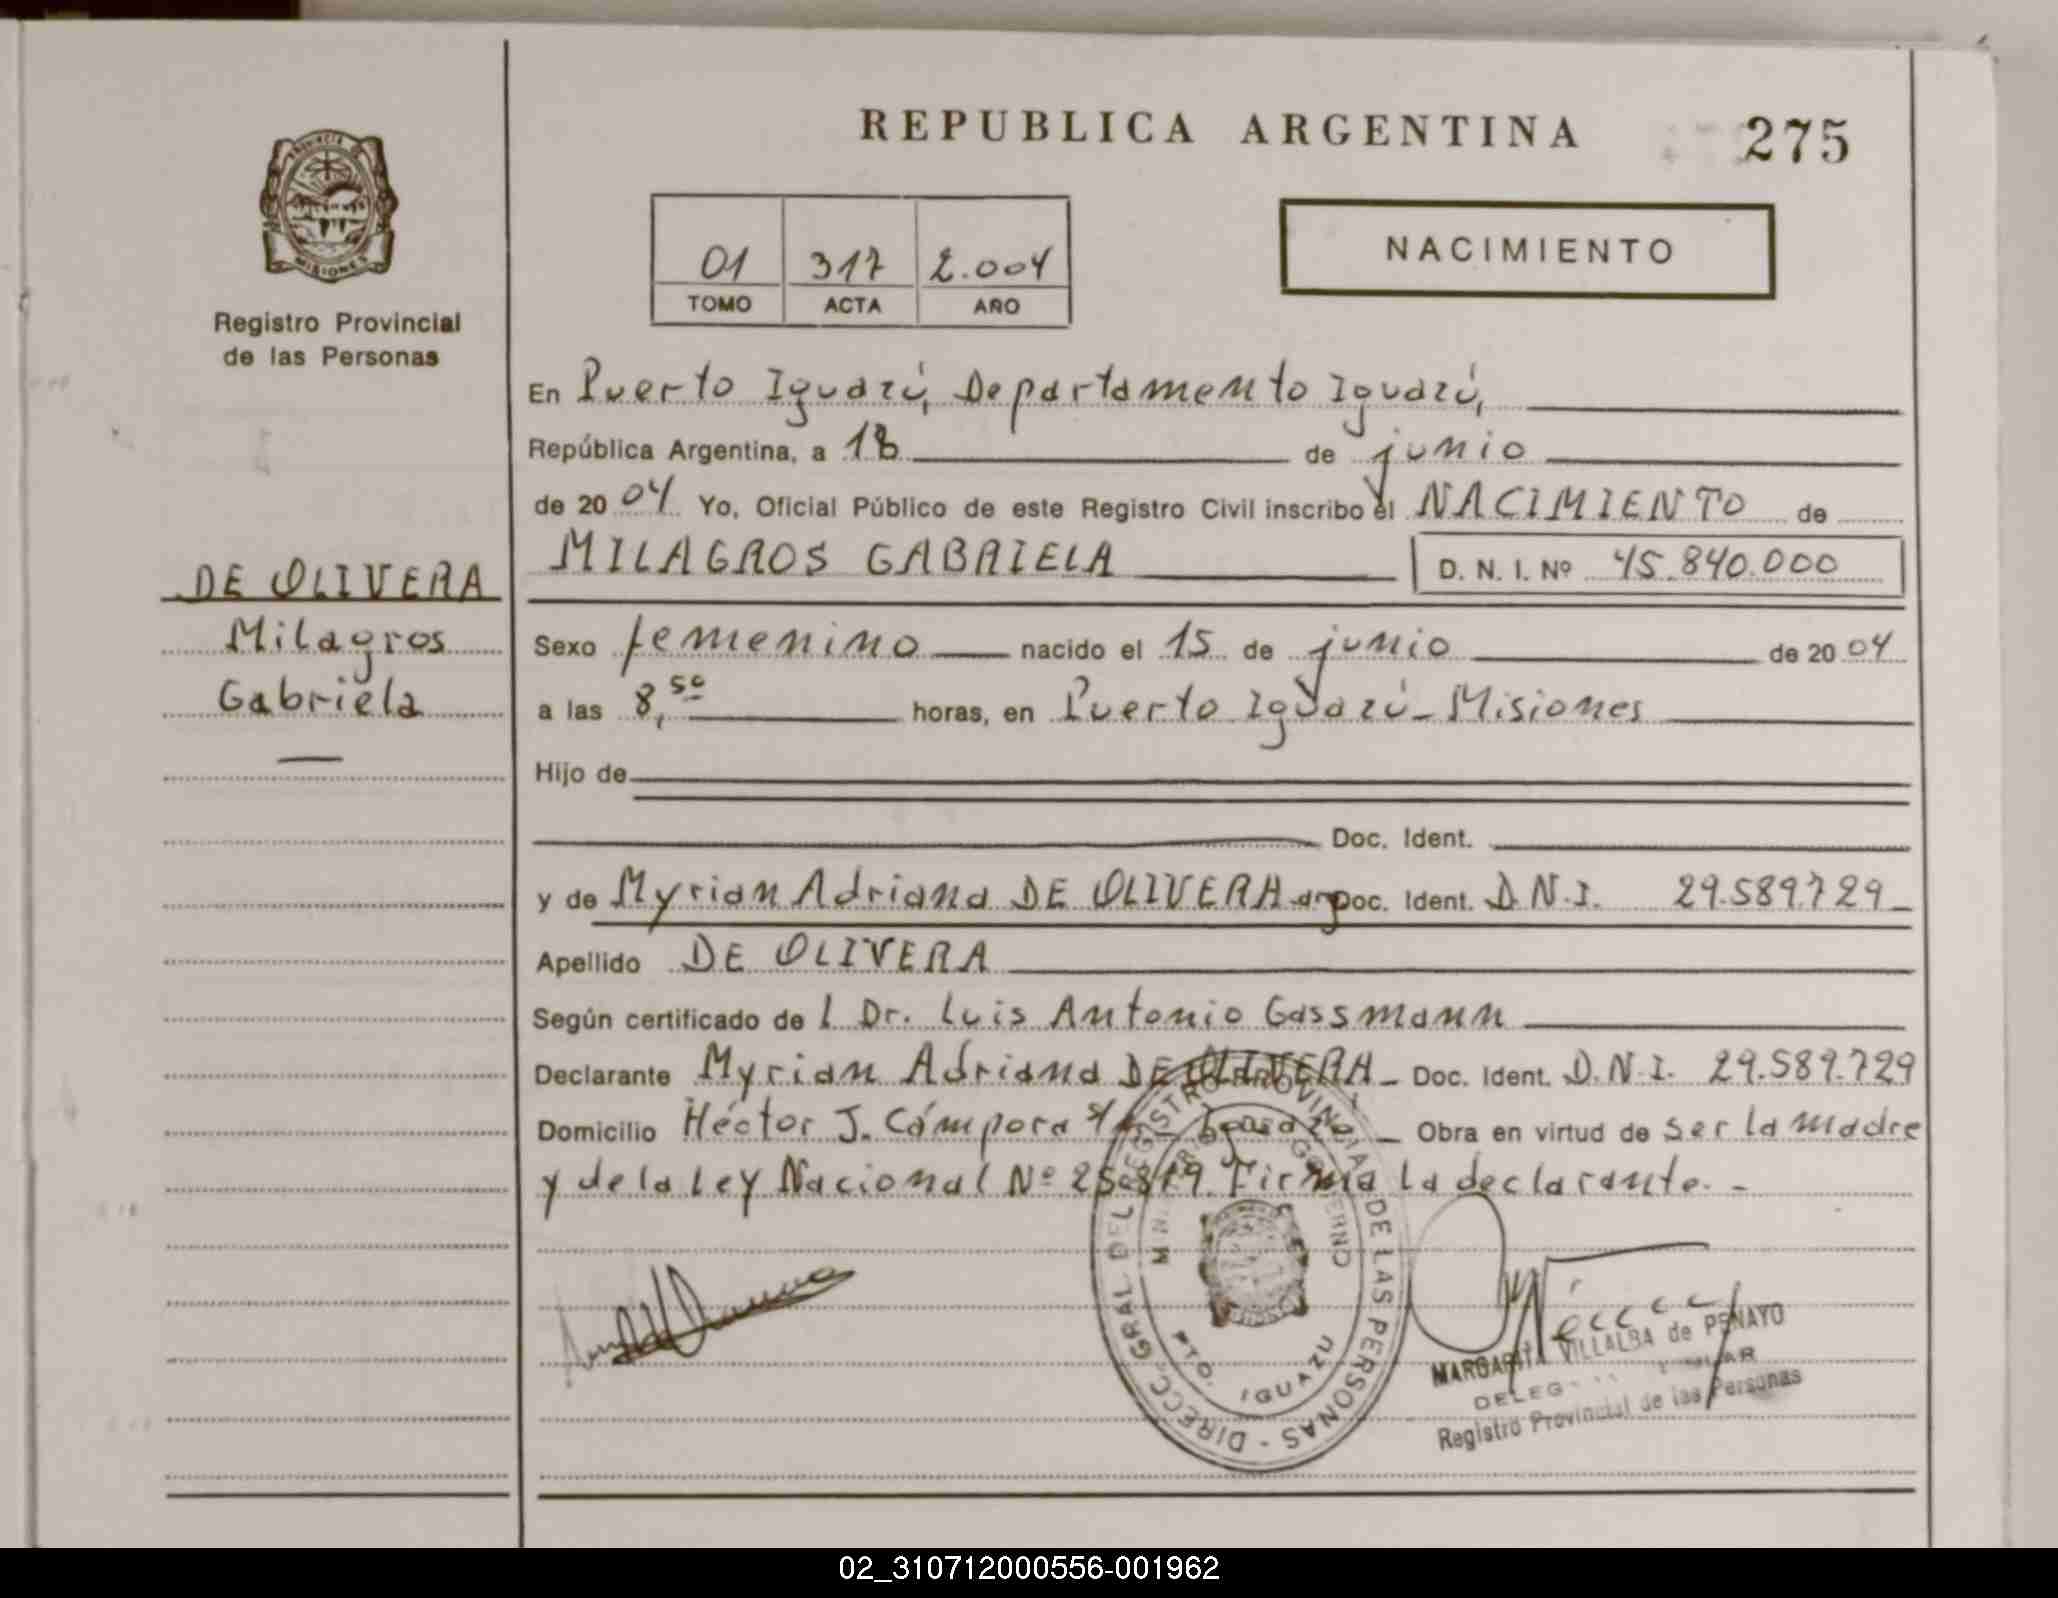 REPUBLICA ARGENTINA
275
PROVINCIA DE
MISIONES
Registro Provincial
de las Personas
01 317 2.004
TOMO ACTA AÑO
NACIMIENTO
En Puerto Iguazú, Departamento Iguazú,
República Argentina, a 18 de junio
de 2004 Yo, Oficial Público de este Registro Civil inscribo el NACIMIENTO de
MILAGROS GABRIELA D. N. I. Nº 45.840.000
DE OLIVERA
Milagros
Gabriela
Sexo femenino nacido el 15 de junio de 2004
a las 8,50 horas, en Puerto Iguazú - Misiones
Hijo de
Doc. Ident.
y de Myrian Adriana DE OLIVERA arg Doc. Ident. D.N.I. 29.589.729
Apellido DE OLIVERA
Según certificado del Dr. Luis Antonio Gassmann
Declarante Myrian Adriana DE OLIVERA - Doc. Ident. D.N.I. 29.589.729
Domicilio Héctor J. Cámpora Iguazú - Obra en virtud de ser la madre
y de la Ley Nacional Nº 25.819. Firma la declarante. -
DIRECC. GRAL DEL REGISTRO PROVINCIAL DE LAS PERSONAS -
GOBIERNO
PTO. IGUAZU
MARGARITA VILLALBA de PENAYO
Registro Provincial de las Personas
02_310712000556-001962